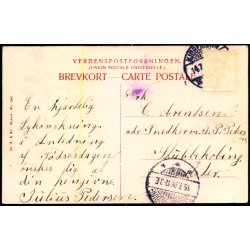 VERDENSPOSTFORENINGEN.
(UNION POSTALE UNIVERSELLE.)
BREVKORT – CARTE POSTALE
En hjertelig
Lykønskning
i Anledning
af Fødselsdagen
ønskes dig af
din hengivne
Julius Pedersen
Frk.
C. Arentsen
adr. Snedkerm. S. P.
Stubbekøbing